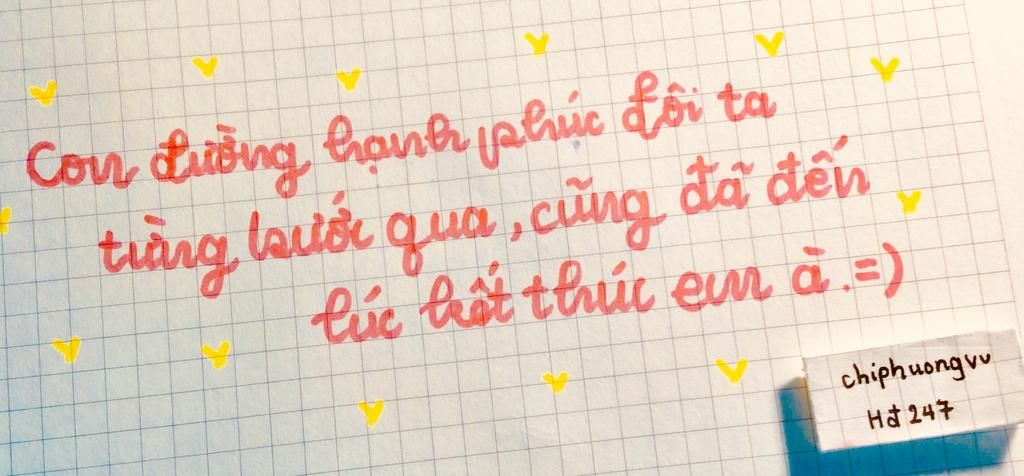 Con đường hạnh phúc đôi ta
từng bước qua, cũng đã đến
lúc kết thúc em à. =)
chiphuongvu
Hđ 247